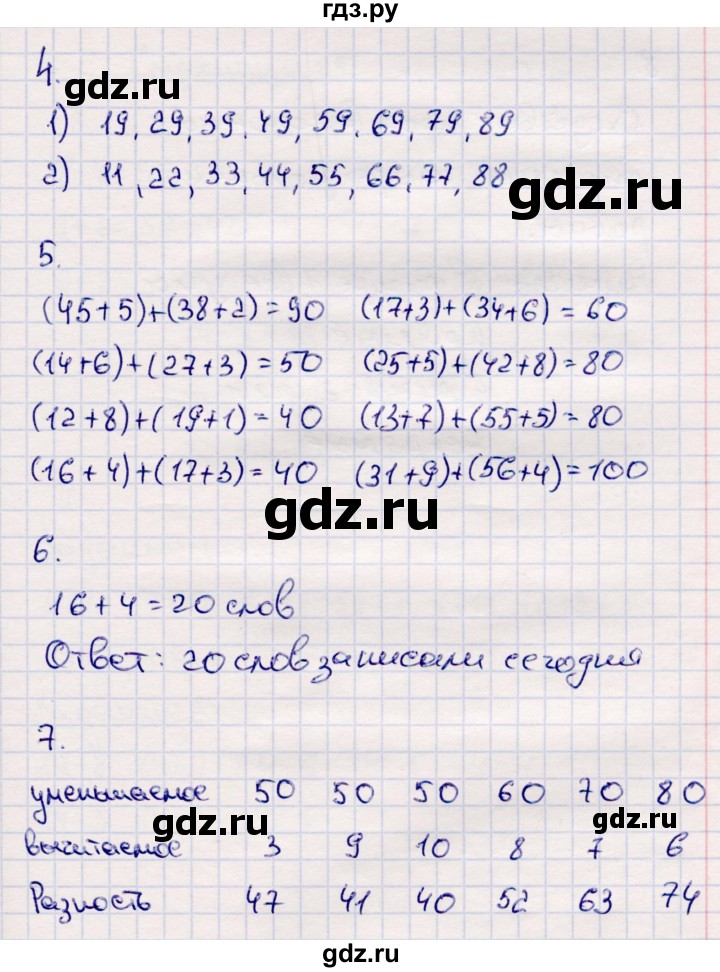 гдз.ру
4.
gdz.ru
1) 19, 29, 39, 49, 59, 69, 79, 89
2) 11, 22, 33, 44, 55, 66, 77, 88
gdz.ru
5.
(45+5)+(38+2)=90 (17+3)+(34+6)=60
(14+6)+(27+3)=50 (25+5)+(42+8)=80
(12+8)+(19+1)=40 (13+7)+(55+5)=80
(16+4)+(17+3)=40 (31+9)+(56+4)=100
gdz.ru
6.
16+4=20 слов
Ответ: 20 слов записали сегодня
7.
уменьшаемое 50 50 50 60 70 80
gdz.ru
gdz.ru
вычитаемое 3 9 10 8 7 6
Разность 47 41 40 52 63 74
gdz.ru